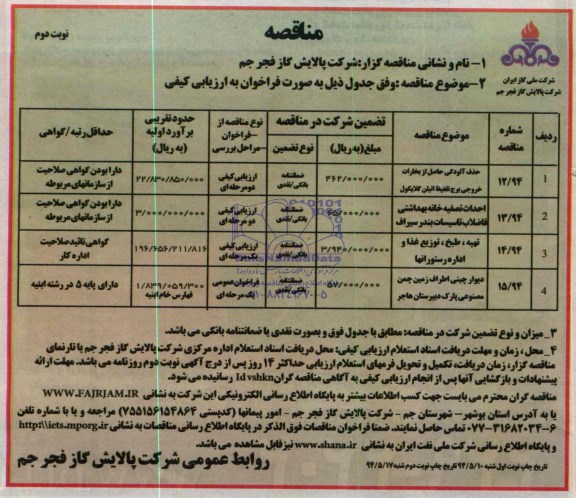 مناقصه
نوبت دوم
شرکت ملی گاز ایران
شرکت پالایش گاز فجر جم
۱- نام و نشانی مناقصه گزار:شرکت پالایش گاز فجر جم
۲-موضوع مناقصه :وفق جدول ذیل به صورت فراخوان به ارزیابی کیفی
ردیف
شماره مناقصه
موضوع مناقصه
تضمین شرکت در مناقصه
مبلغ(به ریال)
نوع تضمین
نوع مناقصه از -فراخوان -مراحل بررسی
حدود تقریبی برآورد اولیه (به ریال)
حداقل رتبه/ گواهی
1
۱۲/۹۴
حذف آلودگی حاصل از بخارات خروجی برج تغلیظ اتیلن گلایکول
۴۶۲/۰۰۰/۰۰۰
ضمانتنامه بانکی/نقدی
ارزیابی کیفی دو مرحله ای
۲۲/۸۳۰/۸۵۰/۰۰۰
دارا بودن گواهی صلاحیت از سازمانهای مربوطه
2
۱۳/۹۴
احداث تصفیه خانه بهداشتی فاضلاب تاسیسات بندر سیراف
۶۵/۰۰۰/۰۰۰
ضمانتنامه بانکی/نقدی
ارزیابی کیفی دو مرحله ای
۳/۰۰۰/۰۰۰/۰۰۰
دارا بودن گواهی صلاحیت از سازمانهای مربوطه
3
۱۴/۹۴
تهیه ، طبخ ، توزیع غذا و اداره رستورانها
۳/۹۴۰/۰۰۰/۰۰۰
ضمانتنامه بانکی/نقدی
ارزیابی کیفی یک مرحله ای
۱۹۶/۶۵۶/۲۱۱/۸۱۶
گواهی تائید صلاحیت اداره کار
4
۱۵/۹۴
دیوار چینی اطراف زمین چمن مصنوعی پارک دبیرستان هاجر
۵۷/۰۰۰/۰۰۰
ضمانتنامه بانکی/نقدی
فراخوان عمومی یک مرحله ای
۱/۸۳۹/۰۵۹/۳۰۰
فهارس خام ابنیه
دارای پایه ۵ در رشته ابنیه
۳_میزان و نوع تضمین شرکت در مناقصه: مطابق با جدول فوق و بصورت نقدی یا ضمانتنامه بانکی می باشد.
۴_محل ، زمان و مهلت دریافت اسناد استعلام ارزیابی کیفی: محل دریافت اسناد استعلام اداره مرکزی شرکت پالایش گاز فجر جم یا تارنمای
مناقصه گزار، زمان دریافت، تکمیل و تحویل فرمهای استعلام ارزیابی حداکثر ۱۴ روز پس از درج آگهی نوبت دوم روزنامه می باشد. مهلت ارائه
پیشنهادات و بازگشایی آنها پس از انجام ارزیابی کیفی به آگاهی مناقصه گران ld vshkn رسانیده می شود.
مناقصه گران محترم می بایست جهت کسب اطلاعات بیشتر به پایگاه اطلاع رسانی الکترونیکی این شرکت به نشانی WWW.FAJRJAM.IR
یا به آدرس استان بوشهر- شهرستان جم - شرکت پالایش گاز فجر جم - امور پیمانها (کدپستی ۷۵۵۱۵۶۱۵۴۸۶۴) مراجعه و یا با شماره تلفن
۶-۰۷۷-۳۱۶۸۲۰۳۴ تماس حاصل نمایند. ضمنا فراخوان مناقصات فوق الذکر در پایگاه اطلاع رسانی مناقصات به نشانی http:\\iets.mporg.ir
و پایگاه اطلاع رسانی شرکت ملی نفت ایران به نشانی www.shana.ir نیز قابل مشاهده می باشد.
تاریخ چاپ نوبت اول شنبه ۹۴/۵/۱۰ تاریخ چاپ نوبت دوم شنبه ۹۴/۵/۱۷
روابط عمومی شرکت پالایش گاز فجر جم